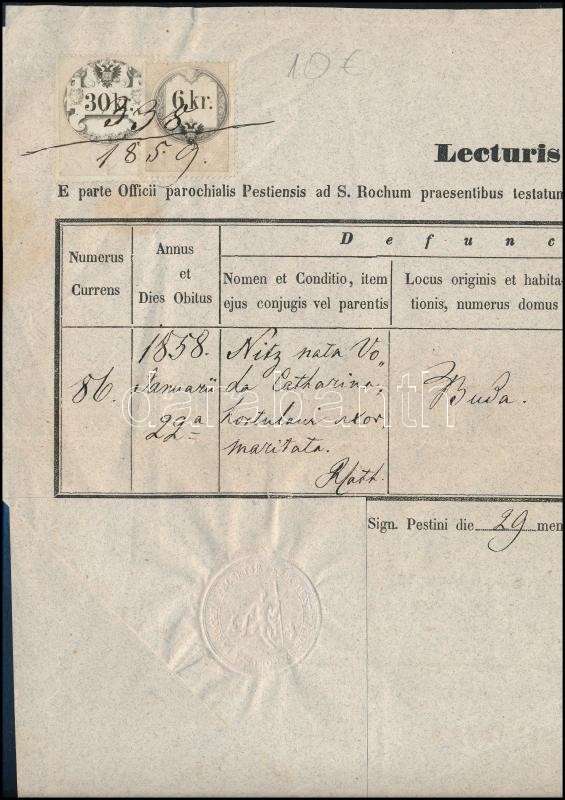 10 €
30 kr. 6 kr.
338
1859.
Lecturis
E parte Officii parochialis Pestiensis ad S. Rochum praesentibus testatum
Defunc
Numerus Currens
Annus et Dies Obitus
Nomen et Conditio, item
ejus conjugis vel parentis
Locus originis et habita-
tionis, numerus domus
86.
1858.
Januarii
22a
Nitz nata Vo„
da Catharina,
uxor
maritata.
Kath.
Buda.
darabanth
Sign. Pestini die 29 men